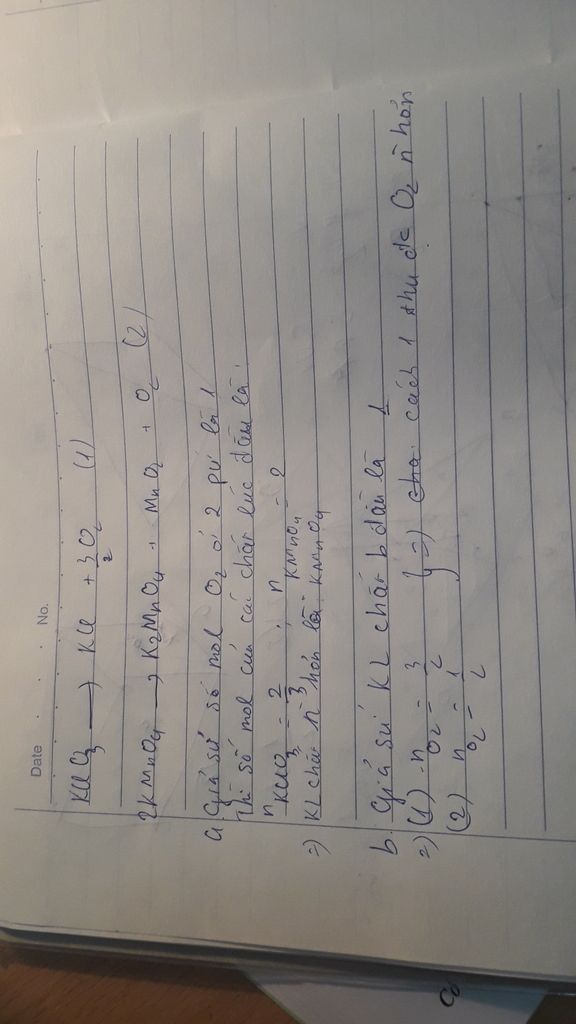 Date . . . No.
KClO3 → KCl + 3/2 O2 (1)
2KMnO4 → K2MnO4 + MnO2 + O2 (2)
a. Giả sử số mol O2 ở 2 pứ là 1
Thì số mol của các chất lúc đầu là:
nKClO3 = 2/3 ; nKMnO4 = 2
=> KL chất n` hơn là KMnO4
b. Giả sử KL chất b đầu là 1
=> (1) nO2 = 3/2 } => cách 1 thu đc O2 n` hơn
(2) nO2 = 1/2